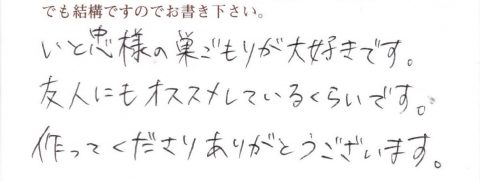 でも結構ですのでお書き下さい。
いと忠様の巣ごもりが大好きです。
友人にもオススメしているくらいです。
作ってくださりありがとうございます。